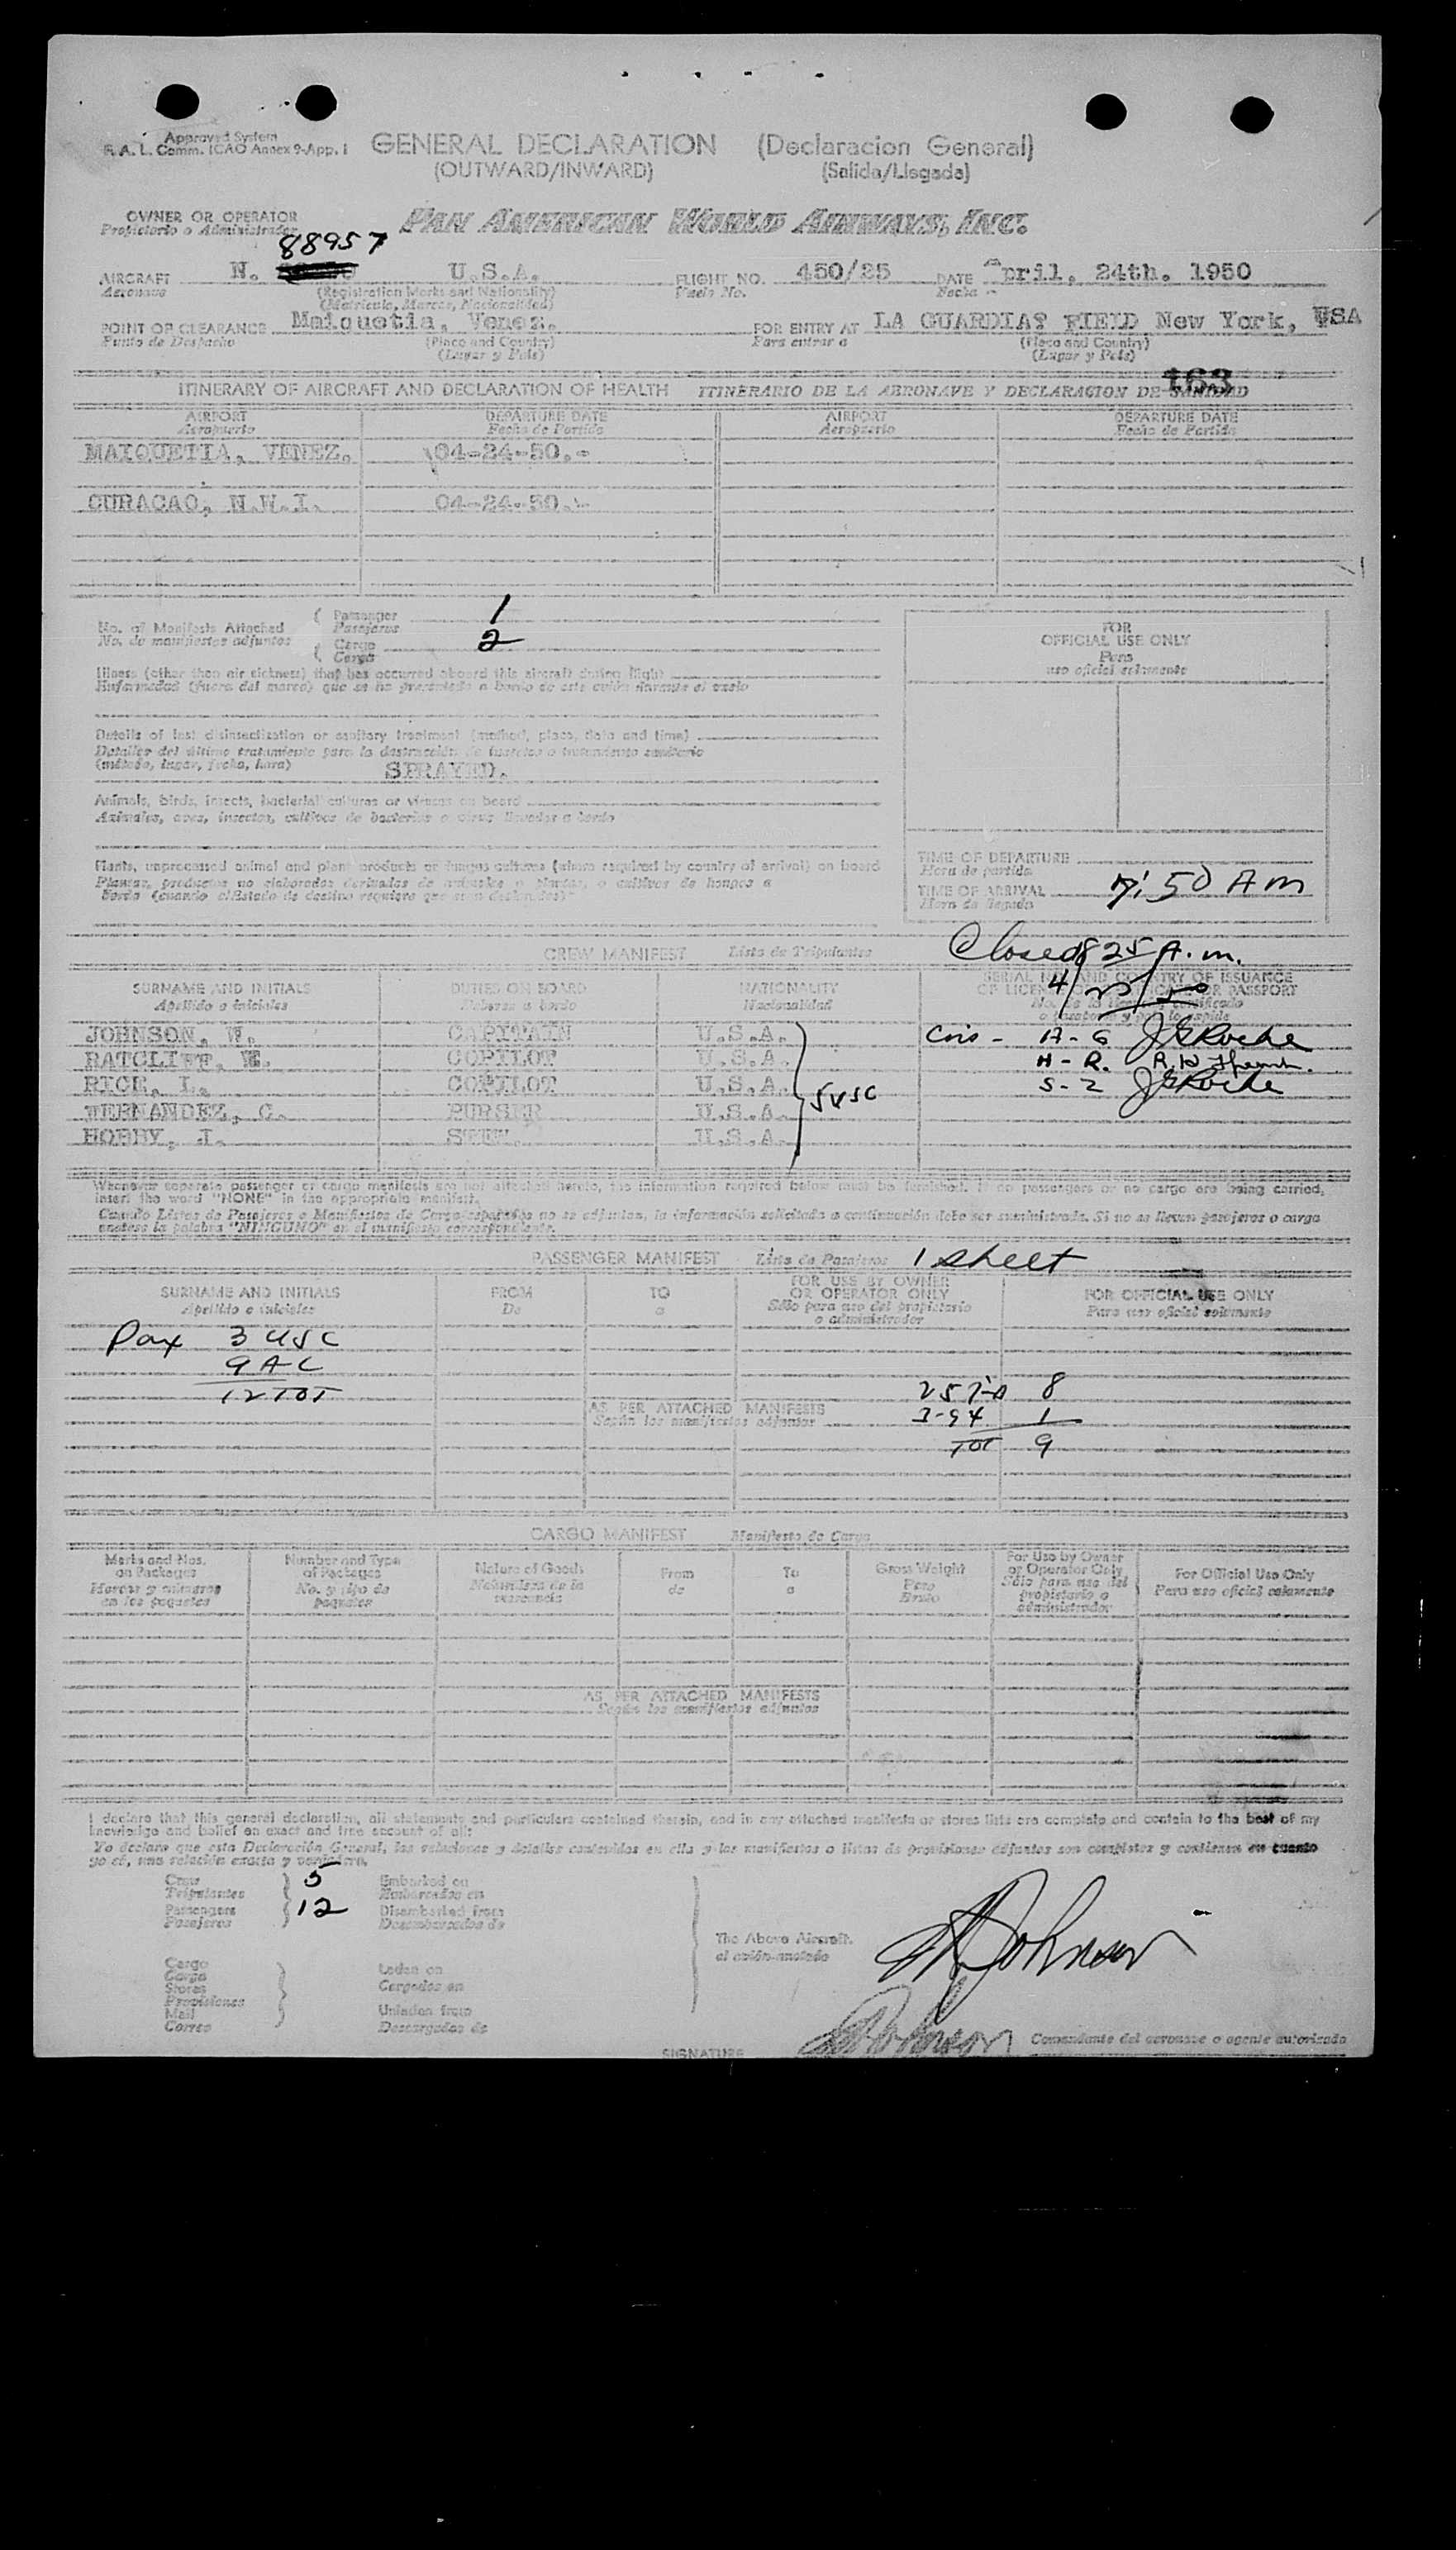 Approved System
F. A. L. Comm. ICAO Annex 9-App. 1
GENERAL DECLARATION (Declaracion General)
(OUTWARD/INWARD) (Salida/Llegada)
OWNER OR OPERATOR PAN AMERICAN WORLD AIRWAYS, INC.
Propietario o Administrador
88957
AIRCRAFT N. U.S.A. FLIGHT NO. 450/25 DATE April, 24th. 1950
Aeronave (Registration Marks and Nationality) Vuelo No. Fecha
(Matricula, Marcas, Nacionalidad)
POINT OF CLEARANCE Maiquetia, Venez. FOR ENTRY AT LA GUARDIA? FIELD New York, USA
Punto de Despacho (Place and Country) Para entrar a (Place and Country)
(Lugar y País) (Lugar y País)
163
ITINERARY OF AIRCRAFT AND DECLARATION OF HEALTH ITINERARIO DE LA AERONAVE Y DECLARACION DE SANIDAD
AIRPORT DEPARTURE DATE AIRPORT DEPARTURE DATE
Aeropuerto Fecha de Partida Aeropuerto Fecha de Partida
MAIQUETIA, VENEZ. 04-24-50.-
CURACAO, N.W.I. 04-24-50.-
No. of Manifests Attached Passenger 1
No. de manifiestos adjuntos Pasajeros
Cargo 2
Carga
FOR
OFFICIAL USE ONLY
Para
uso oficial solamente
Illness (other than air sickness) that has occurred aboard this aircraft during flight
Enfermedad (fuera del mareo) que se ha presentado a bordo de este avión durante el vuelo
Details of last disinsectization or sanitary treatment (method, place, date and time)
Detalles del último tratamiento para la destrucción de insectos o tratamiento sanitario
(método, lugar, fecha, hora) SPRAYED.
Animals, birds, insects, bacterial cultures or viruses on board
Animales, aves, insectos, cultivos de bacterias o virus llevados a bordo
Plants, unprocessed animal and plant products or fungus cultures (where required by country of arrival) on board
Plantas, productos no elaborados derivados de animales o plantas, o cultivos de hongos a
bordo (cuando el Estado de destino requiere que sean declarados)
TIME OF DEPARTURE
Hora de partida
TIME OF ARRIVAL 7:50 AM
Hora de llegada
CREW MANIFEST Lista de Tripulantes
Closed 825 A.m.
SURNAME AND INITIALS DUTIES ON BOARD NATIONALITY SERIAL NO. AND COUNTRY OF ISSUANCE
Apellido e iniciales Deberes a bordo Nacionalidad OF LICENSE, CERTIFICATE OR PASSPORT
JOHNSON, W. CAPITAIN U.S.A. A-G J E Roche
RATCLIFF, E. COPILOT U.S.A. H-R.
RICE, L. COPILOT U.S.A. S-Z J E Roche
FERNANDEZ, C. PURSER U.S.A. 5 USC
HOBBY, J. STEW. U.S.A.
Whenever separate passenger or cargo manifests are not attached hereto, the information required below must be furnished. If no passengers or no cargo are being carried,
insert the word "NONE" in the appropriate manifest.
Cuando Listas de Pasajeros o Manifiestos de Carga separados no se adjuntan, la información solicitada a continuación debe ser suministrada. Si no se llevan pasajeros o carga
anótese la palabra "NINGUNO" en el manifiesto correspondiente.
PASSENGER MANIFEST Lista de Pasajeros 1 sheet
SURNAME AND INITIALS FROM TO FOR USE BY OWNER OR OPERATOR ONLY FOR OFFICIAL USE ONLY
Apellido e iniciales De a Sólo para uso del propietario o administrador Para uso oficial solamente
Pax 3 USC
9 AC
12 TOT
8
AS PER ATTACHED MANIFESTS 1
Según los manifiestos adjuntos
TOT 9
CARGO MANIFEST Manifiesto de Carga
Marks and Nos. on Packages Number and Type of Packages Nature of Goods From To Gross Weight For Use by Owner or Operator Only For Official Use Only
Marcas y números en los paquetes No. y tipo de paquetes Naturaleza de la mercancía de a Peso Bruto Sólo para uso del propietario o administrador Para uso oficial solamente
AS PER ATTACHED MANIFESTS
Según los manifiestos adjuntos
I declare that this general declaration, all statements and particulars contained therein, and in any attached manifests or stores lists are complete and contain to the best of my
knowledge and belief an exact and true account of all:
Yo declaro que esta Declaración General, las relaciones y detalles contenidos en ella y los manifiestos o listas de provisiones adjuntos son completos y contienen en cuanto
yo sé, una relación exacta y verdadera.
Crew 5 Embarked on
Tripulantes Embarcados en
Passengers 12 Disembarked from
Pasajeros Desembarcados de
The Above Aircraft.
el avión anotado
W Johnson
Cargo
Carga Laden on
Stores Cargados en
Provisiones
Mail Unladen from
Correo Descargados de
SIGNATURE Johnson Comandante del aeronave o agente autorizado